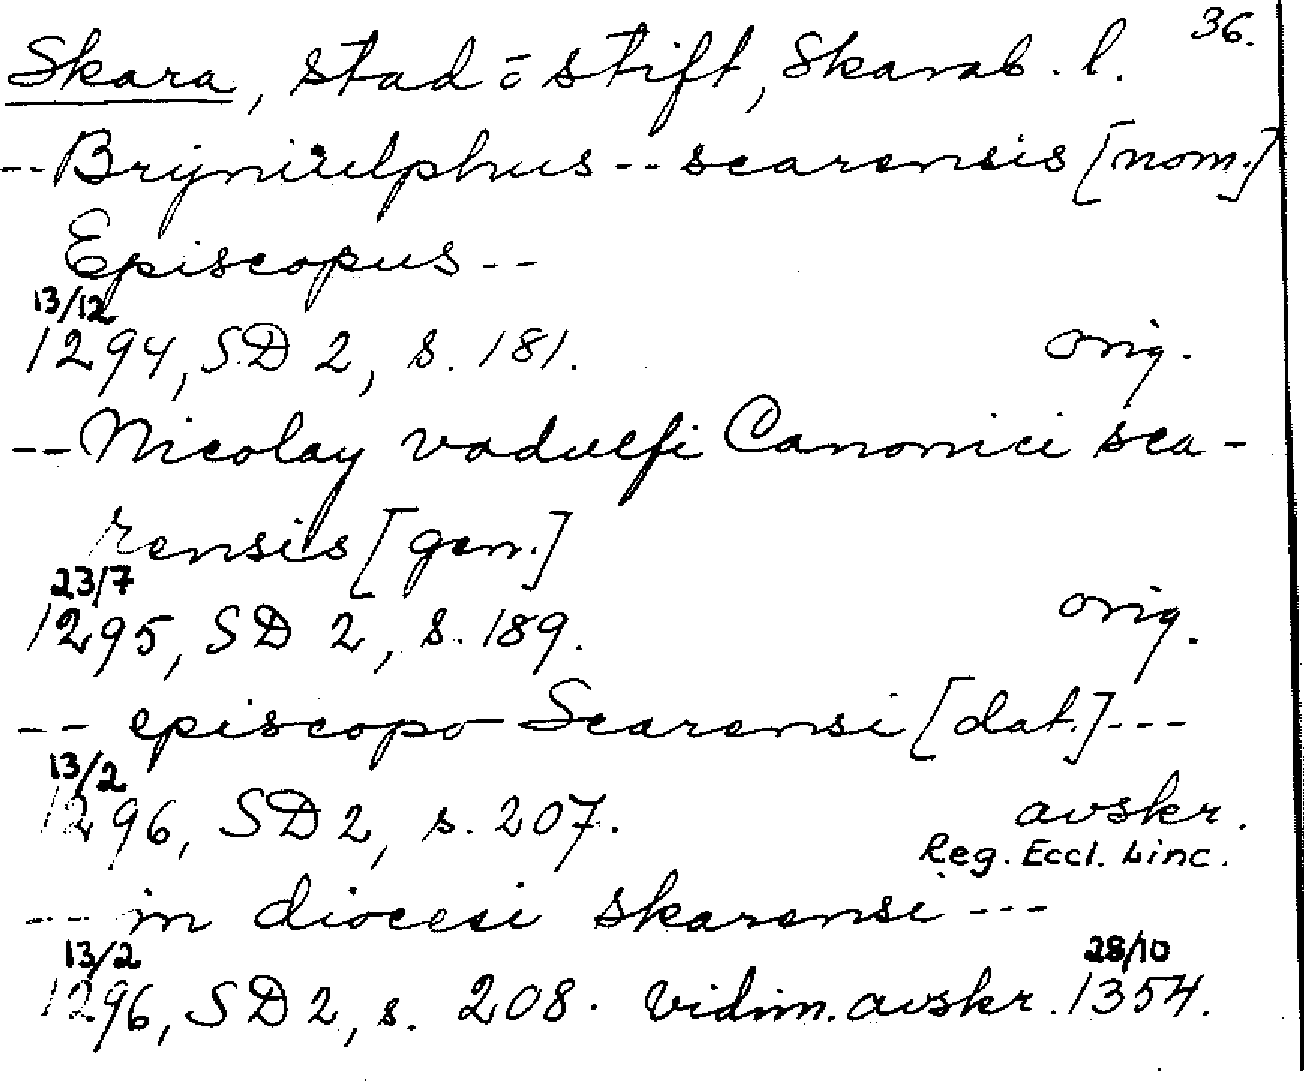 36.
Skara, stad o stift, Skarab. l.
-- Brijniulphus -- scarensis [nom.]
Episcopus --
13/12
1294, SD 2, s. 181. orig.
-- Nicolay vadulfi Canonici sca-
rensis [gen.]
23/7
1295, SD 2, s. 189. orig.
-- episcopo Scarensi [dat.] ---
13/2
1296, SD 2, s. 207. avskr.
Reg. Eccl. Linc.
--- in diocesi skarensi ---
13/2 28/10
1296, SD 2, s. 208. vidim. avskr. 1354.